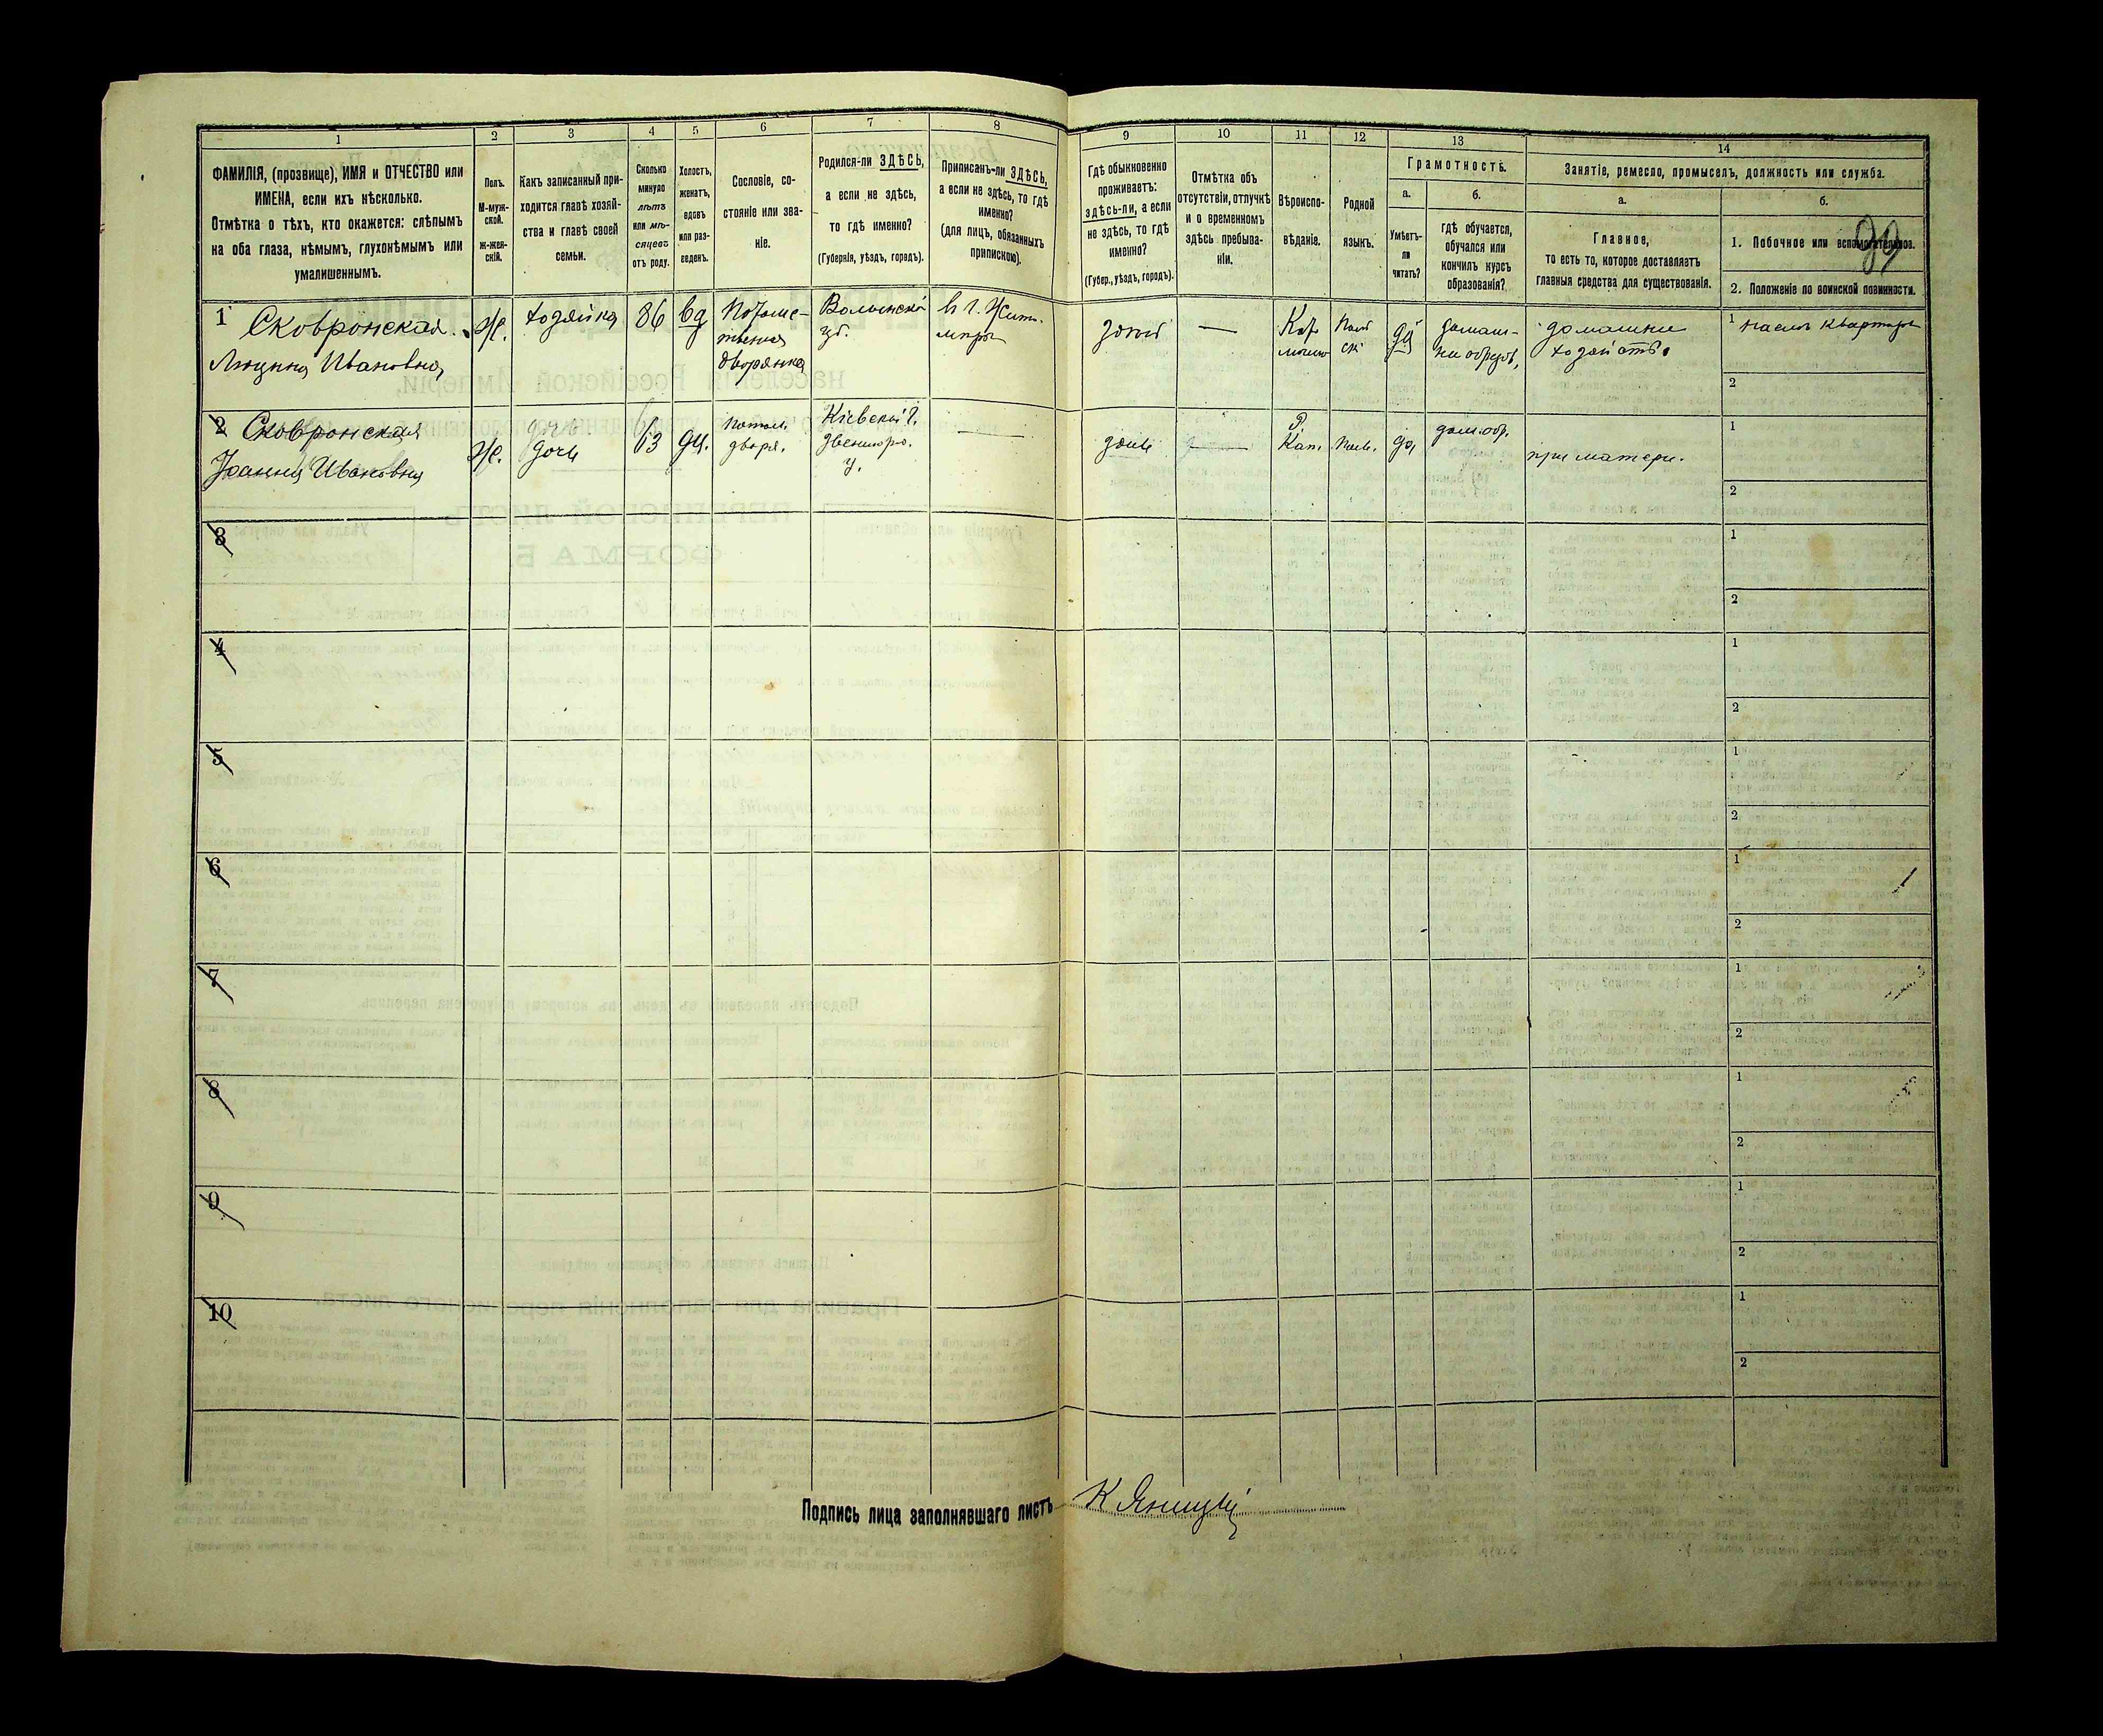 1
2
3
4
5
6
7
8
9
10
11
12
13
14
ФАМИЛІЯ, (прозвище), ИМЯ и ОТЧЕСТВО или
ИМЕНА, если ихъ нѣсколько.
Отмѣтка о тѣхъ, кто окажется: слѣпымъ
на оба глаза, нѣмымъ, глухонѣмымъ или
умалишеннымъ.
Полъ.
М-муж-
ской.
Ж-жен-
скій.
Какъ записанный при-
ходится главѣ хозяй-
ства и главѣ своей
семьи.
Сколько
минуло
лѣтъ
или мѣ-
сяцевъ
отъ роду.
Холостъ,
женатъ,
вдовъ
или раз-
веденъ.
Сословіе, со-
стояніе или зва-
ніе.
Родился-ли ЗДѢСЬ,
а если не здѣсь,
то гдѣ именно?
(Губернія, уѣздъ, городъ).
Приписанъ-ли ЗДѢСЬ,
а если не здѣсь, то гдѣ
именно?
(для лицъ, обязанныхъ
припискою).
Гдѣ обыкновенно
проживаетъ:
здѣсь-ли, а если
не здѣсь, то гдѣ
именно?
(Губер., уѣздъ, городъ).
Отмѣтка объ
отсутствіи, отлучкѣ
и о временномъ
здѣсь пребыва-
ніи.
Вѣроиспо-
вѣданіе.
Родной
языкъ.
Грамотность.
а.
Умѣетъ-
ли
читать?
б.
гдѣ обучается,
обучался или
кончилъ курсъ
образованія?
Занятіе, ремесло, промыселъ, должность или служба.
а.
Главное,
то есть то, которое доставляетъ
главныя средства для существованія.
б.
1. Побочное или вспомогательное.
2. Положеніе по воинской повинности.
1 Сковронская
Ивановна
Ж.
хозяйка
86
вд
Потомс-
твенная
дворянка
Волынской
губ.
въ г. Жито-
миръ
—
Поль
ск
да
домаш-
домашнее
хозяйство
1 наемъ квартиръ
2
2 Сковронская
Іоанна Ивановна
Ж.
дочь
63
дѣ.
потом.
дворя.
Кіевской г.
у.
—
—
Р.
Кат.
Поль.
да
дом. обр.
при матери.
1
2
3
1
2
4
1
2
5
1
2
6
1
2
7
1
2
8
1
2
9
1
2
10
1
2
Подпись лица заполнявшаго листъ К Яницкій